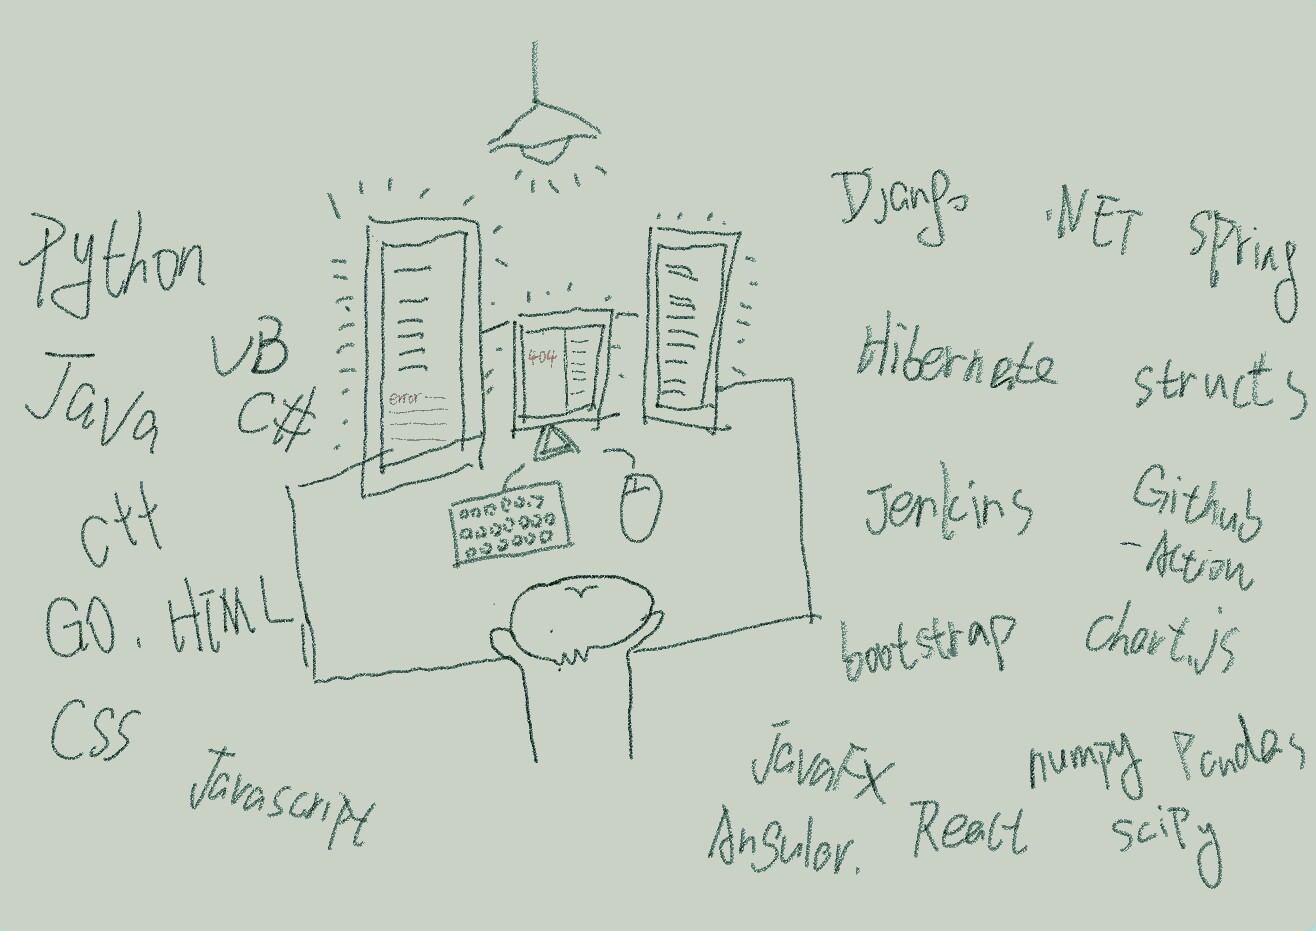 Python
VB
Java
C#
C++
GO. HTML
CSS
Javascript
error
404
Django .NET Spring
Hibernate structs
Jenkins Github
-Action
bootstrap Chart.js
JavaFX numpy Pandas
Angular. React scipy